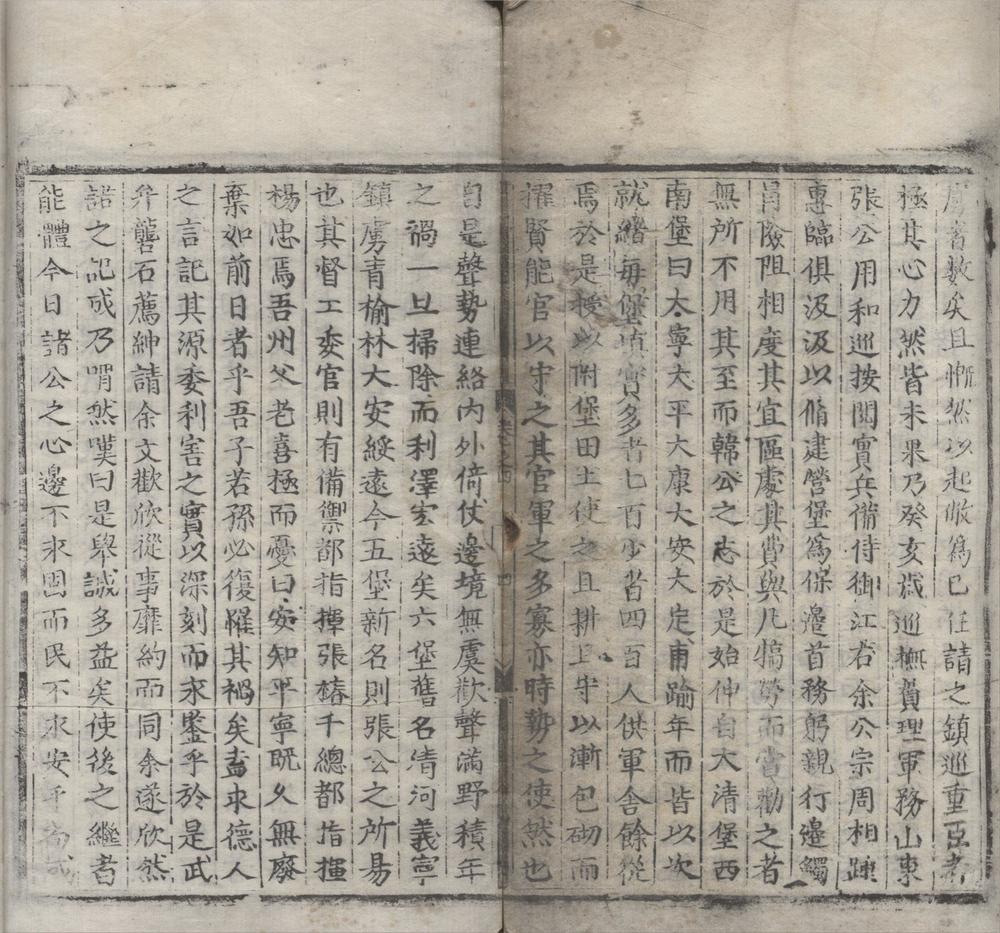 者數矣且慨然以起廢爲已任請之鎮巡重臣者
極其心力然皆未果乃癸亥歲巡撫貳理軍務山東
張公用和巡按閱實兵備侍御江右余公宗周相踵
專臨俱汲汲以脩建營堡爲保邊首務躬親行邊觸
冒險阻相度其宜區處其費與凡犒勞而賞勸之者
無所不用其至而韓公之志於是始伸自大清堡西
南堡曰太寧大平大康大安大定甫踰年而皆以次
就緒每堡填實多者七百少者四百人供軍舍餘從
焉於是授以附堡田土使之且耕且守以漸包砌而
擢賢能官以守之其官軍之多寡亦時勢之使然也
自是聲勢連絡內外倚仗邊境無虞歡聲滿野積年
之禍一旦掃除而利澤宏遠矣六堡舊名清河義寧
鎮虜青榆林大安綏遠今五堡新名則張公之所易
也其督工委官則有備禦都指揮張椿千總都指揮
楊忠焉吾州父老喜極而憂曰安知平寧既久無廢
棄如前日者乎吾子若孫必復罹其禍矣盍求德人
之言記其源委利害之實以深刻而求鑒乎於是武
弁礱石薦紳請余文歡欣從事靡約而同余遂欣然
諾之記成乃喟然嘆曰是舉誠多益矣使後之繼者
能體今日諸公之心邊不求固而民不求安乎